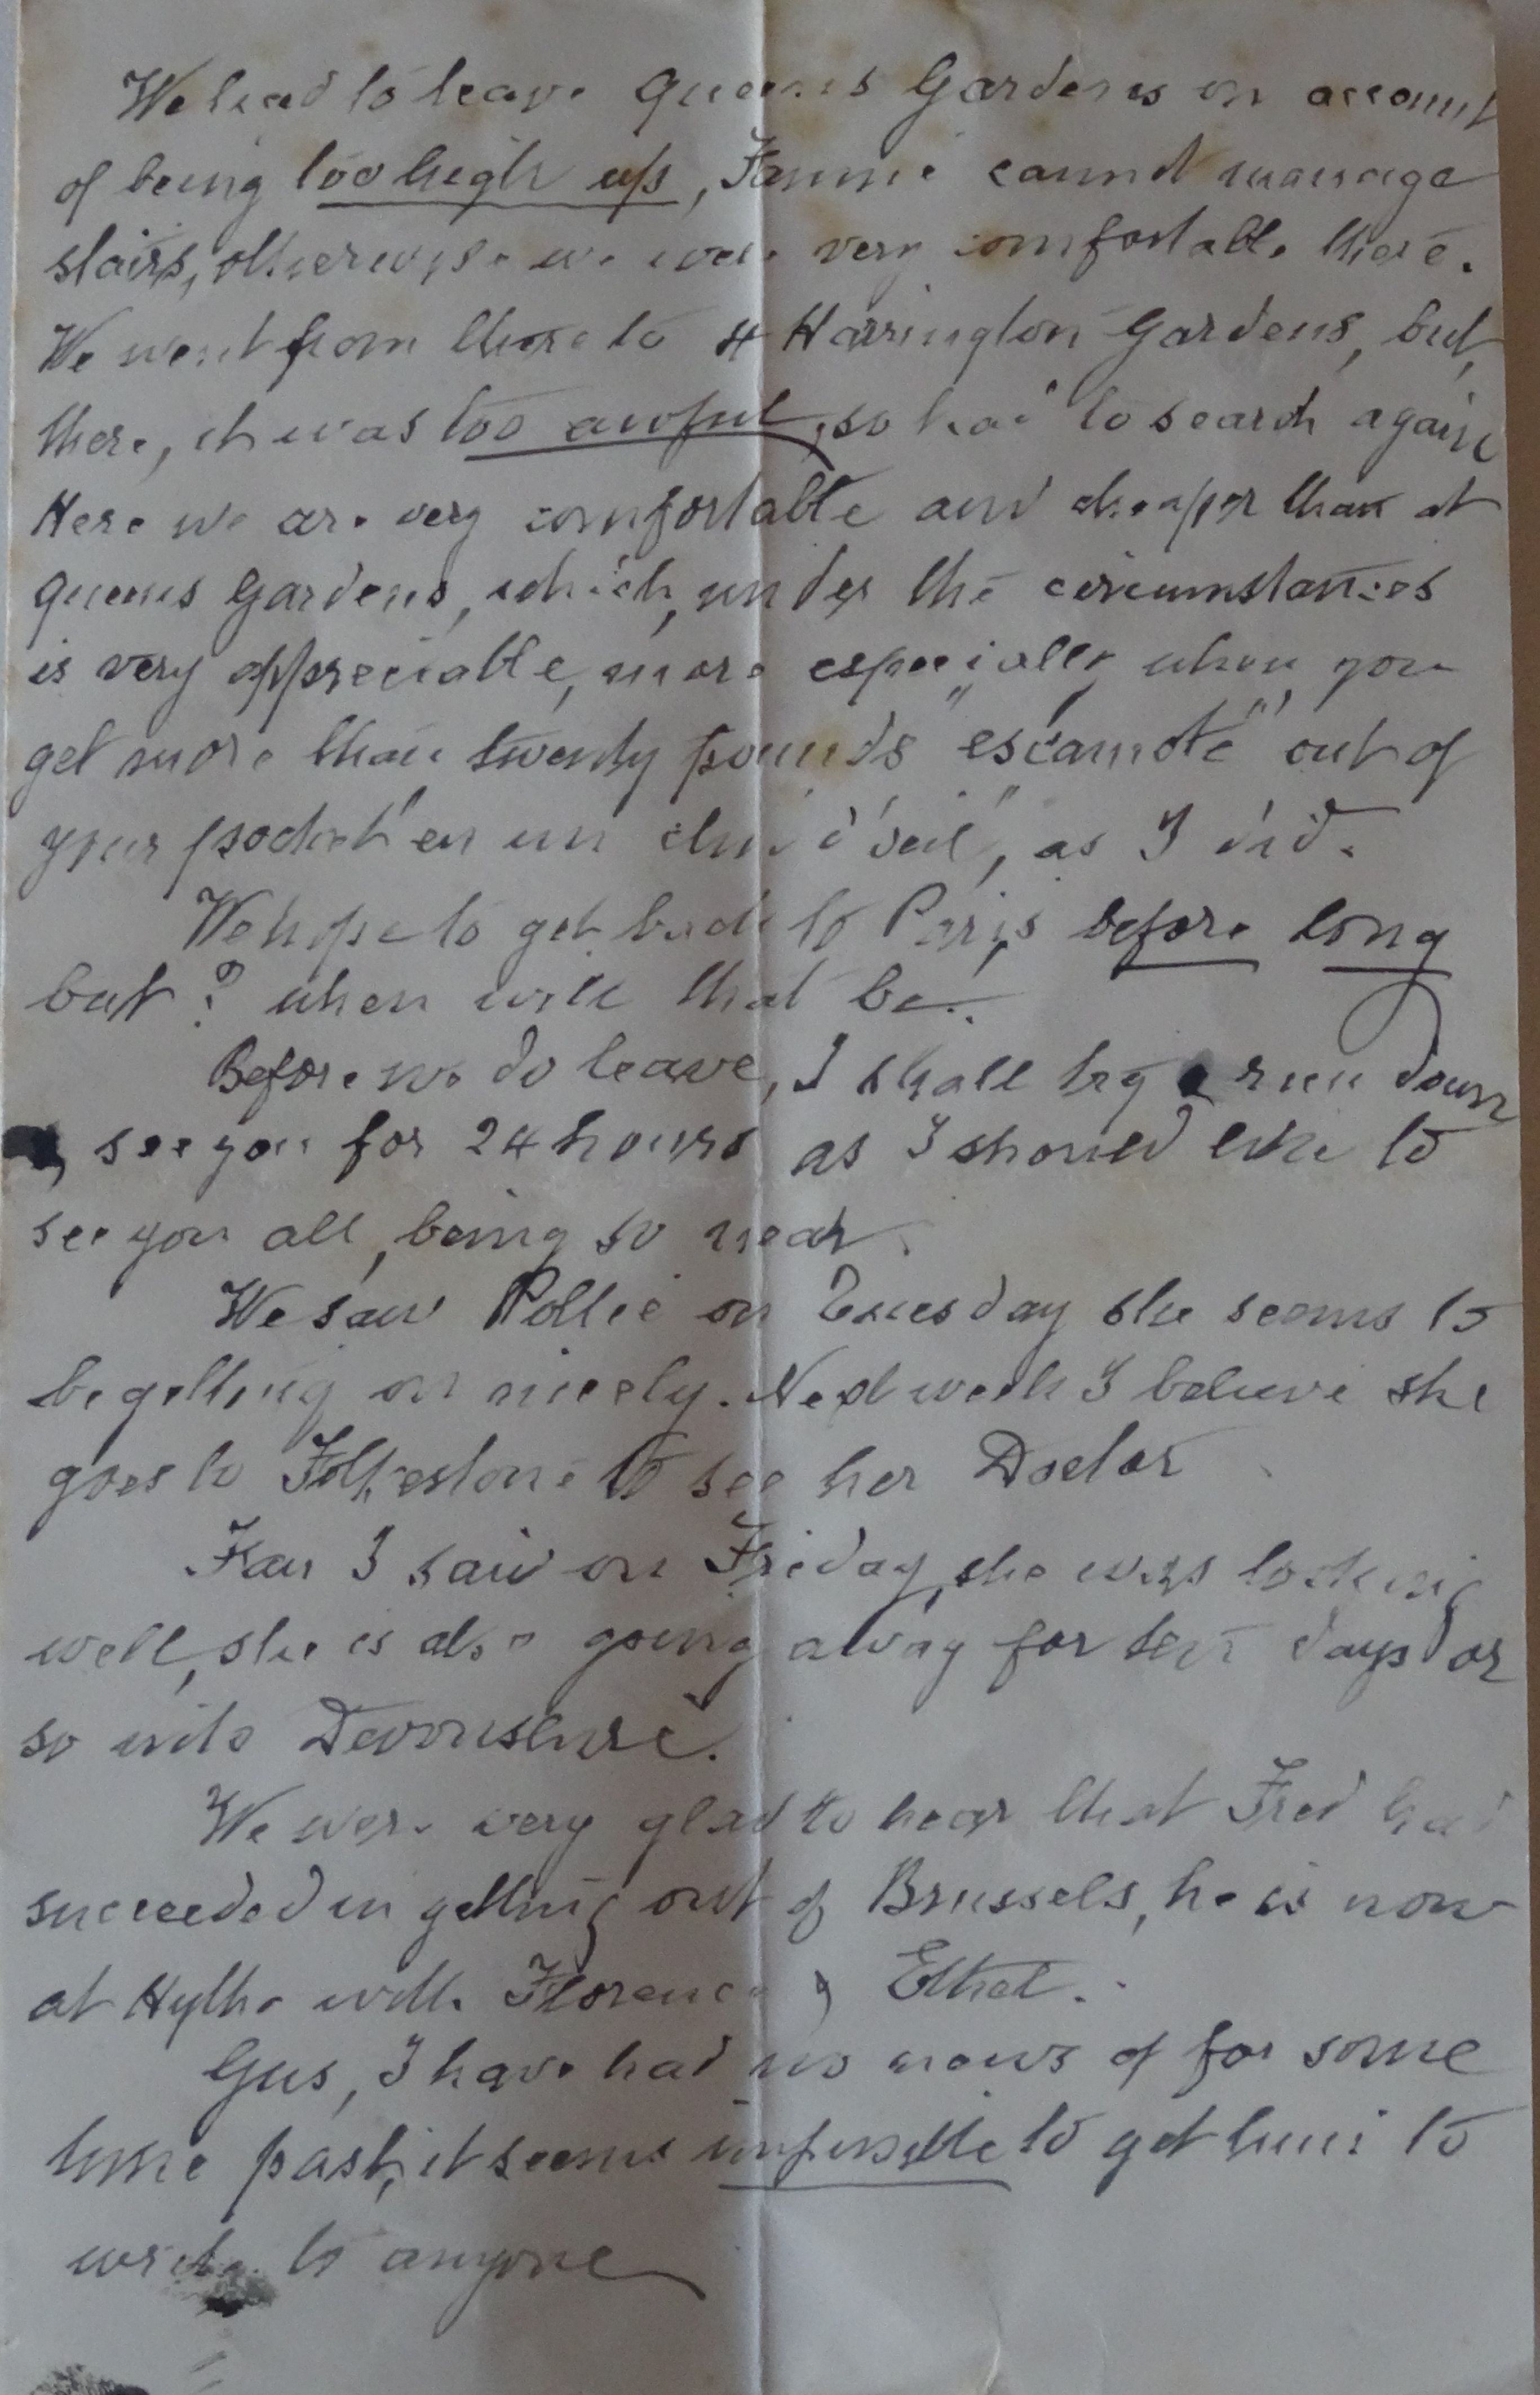 We had to leave Queens Gardens on account
of being too high up, Fannie cannot manage
stairs, otherwise we were very comfortable there.
We went from there to 4 Harrington Gardens, but,
there, it was too awful, so had to search again
Here we are very comfortable and cheaper than at
Queens Gardens, which, under the circumstances
is very appreciable, more especially when you
get more than twenty pounds "escamoté" out of
your pocket "en un clin d'œil", as I did.
We hope to get back to Paris before long
but ? when will that be..
Before we do leave, I shall try & run down
& see you for 24 hours as I should like to
see you all, being so near.
We saw Pollie on Tuesday she seems to
be getting on nicely. Next week I believe she
goes to Folkestone to see her Doctor
Fan I saw on Friday, she was looking
well, she is also going away for ten days or
so into Devonshire.
We were very glad to hear that Fred had
succeeded in getting out of Brussels, he is now
at Hythe with Florence & Ethel.
Gus, I have had no news of for some
time past, it seems impossible to get him to
write to anyone